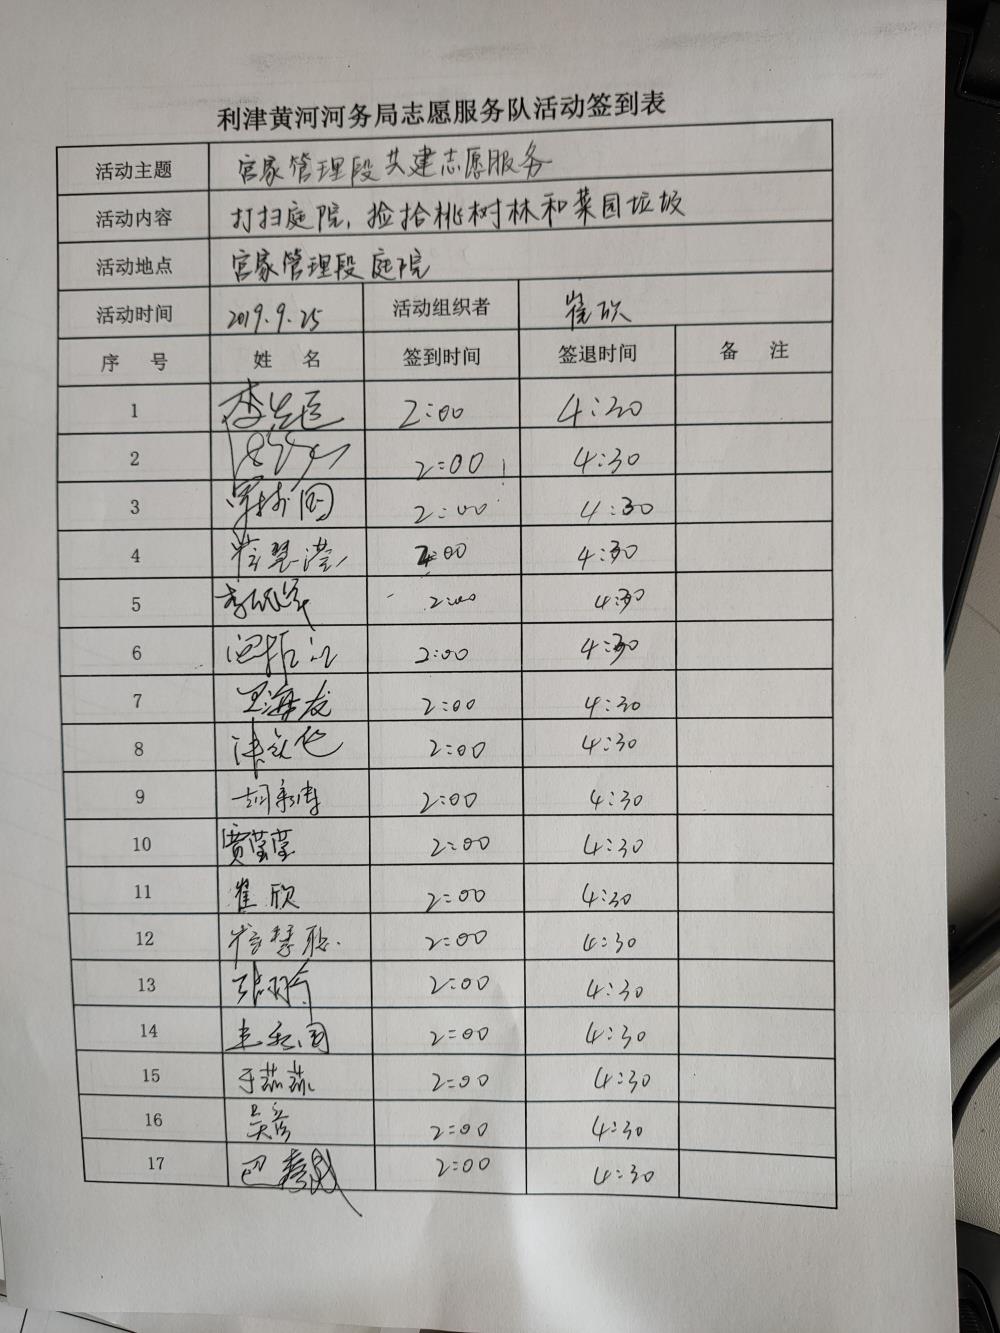 利津黄河河务局志愿服务队活动签到表
活动主题 宫家管理段共建志愿服务
活动内容 打扫庭院，捡拾桃树林和菜园垃圾
活动地点 宫家管理段庭院
活动时间 2019.9.25 活动组织者 崔欣
序 号 姓 名 签到时间 签退时间 备 注
1 2:00 4:30
2 2:00 4:30
3 2:00 4:30
4 2:00 4:30
5 2:00 4:30
6 2:00 4:30
7 王海友 2:00 4:30
8 2:00 4:30
9 胡新涛 2:00 4:30
10 贾莹莹 2:00 4:30
11 崔欣 2:00 4:30
12 崔慧聪 2:00 4:30
13 2:00 4:30
14 2:00 4:30
15 于蕊蕊 2:00 4:30
16 吴彦 2:00 4:30
17 2:00 4:30